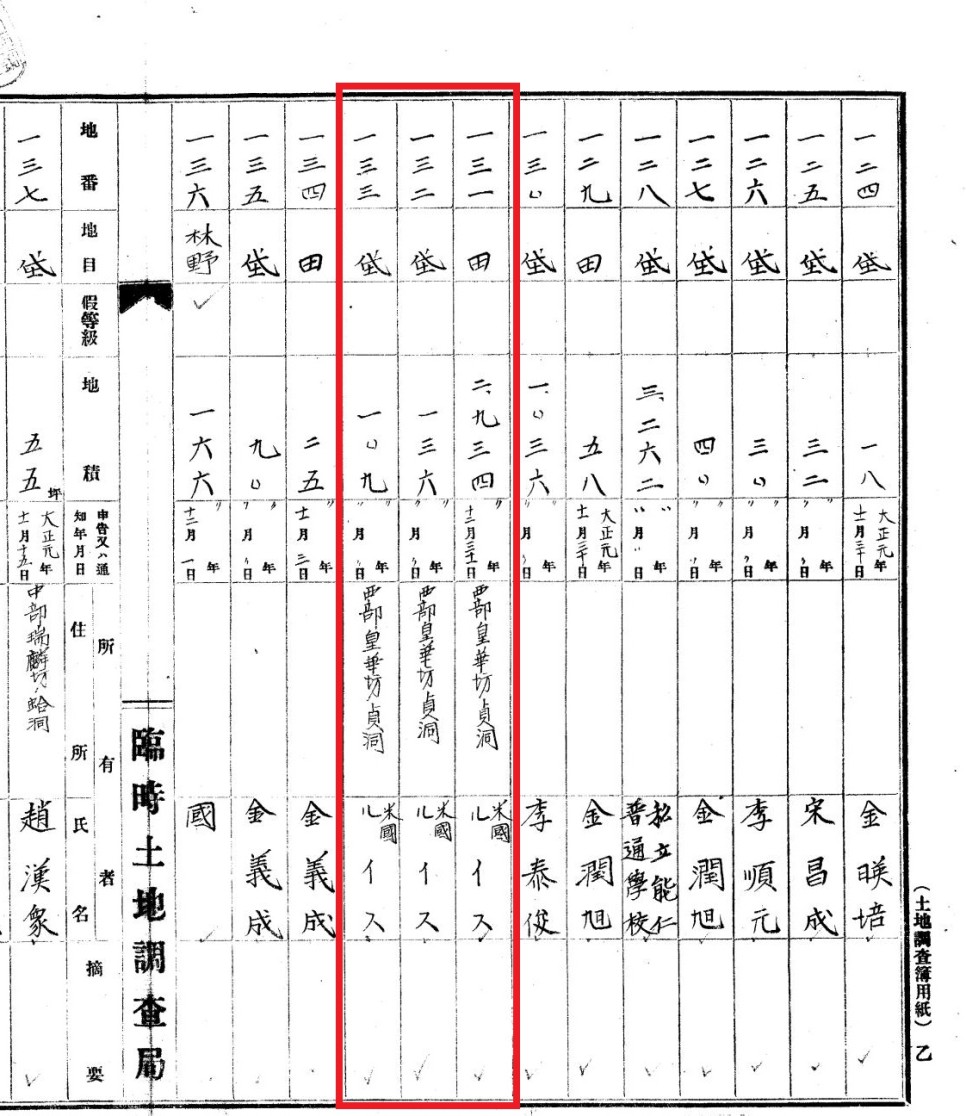 （土地調査簿用紙）乙
一二四 垈 一八 大正元年十一月三十日 金暎培
一二五 垈 三二 〃年〃月〃日 宋昌成
一二六 垈 三〇 〃年〃月〃日 李順元
一二七 垈 四〇 〃年〃月〃日 金潤旭
一二八 垈 三、二六二 〃年〃月〃日 私立能仁普通學校
一二九 田 五八 大正元年十一月三十日 金潤旭
一三〇 垈 一、〇三六 〃年〃月〃日 李泰俊
一三一 田 二、九三四 〃年十二月三十一日 西部皇華坊貞洞 米國ルイス
一三二 垈 一三六 〃年〃月〃日 西部皇華坊貞洞 米國ルイス
一三三 垈 一〇九 〃年〃月〃日 西部皇華坊貞洞 米國ルイス
一三四 田 二五 〃年十一月三日 金義成
一三五 垈 九〇 〃年〃月〃日 金義成
一三六 林野 一六六 〃年十二月一日 國
臨時土地調査局
地番 地目 假等級 地積 申告又ハ通知年月日 所有者 住所 氏名 摘要
一三七 垈 五五坪 大正元年十一月十五日 中部瑞麟坊蛤洞 趙漢衆